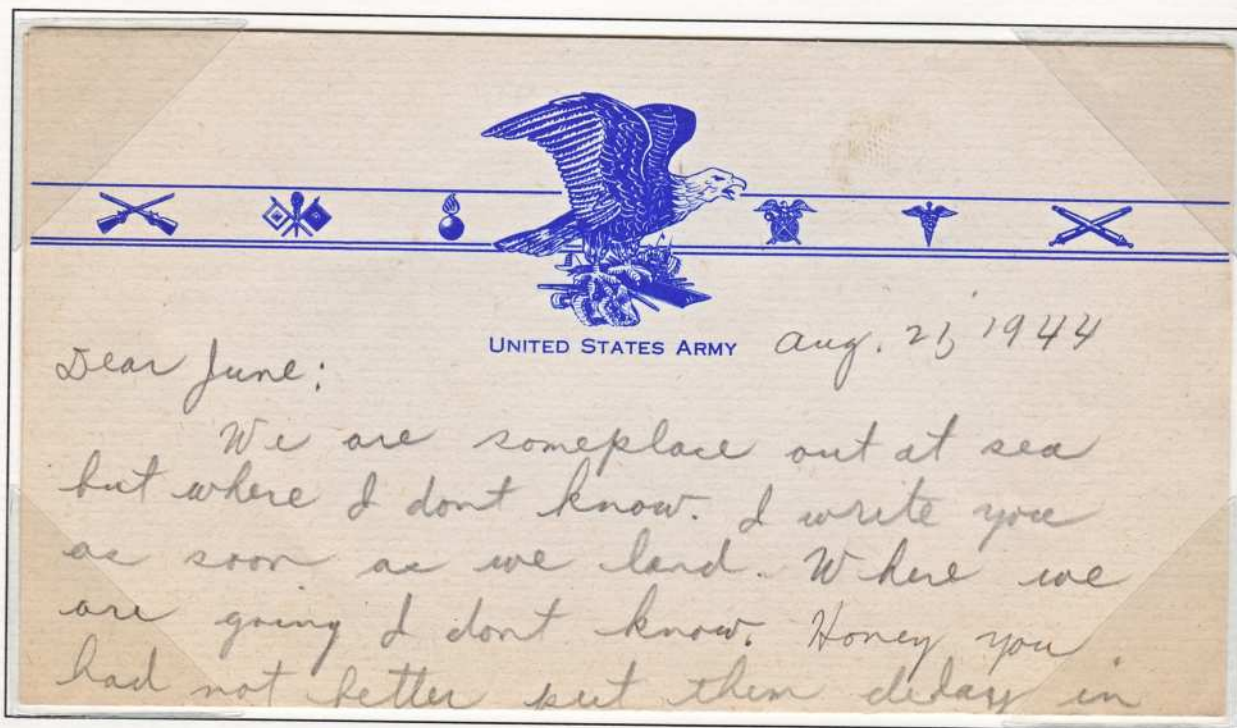 UNITED STATES ARMY
Aug. 1944
Dear June:
We are someplace out at sea
but where I dont know. I write you
as soon as we land. Where we
are going I dont know. Honey you
had not better put them in